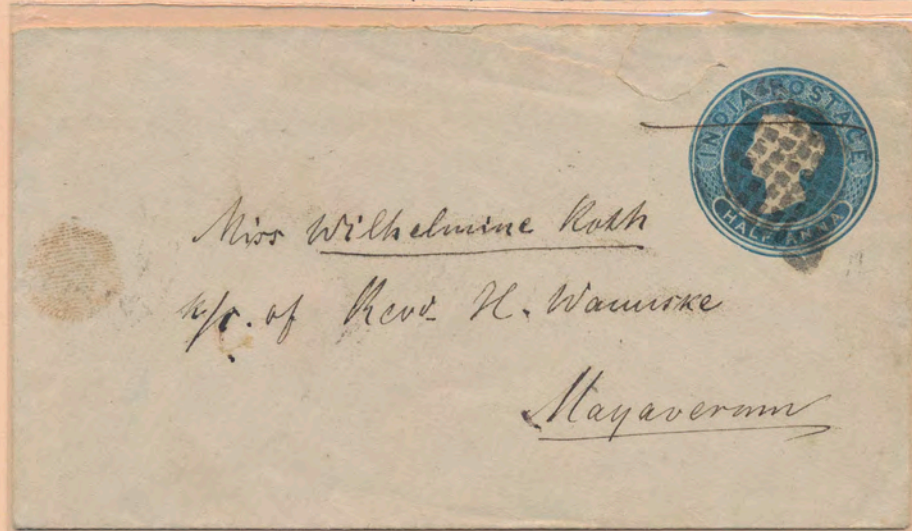 INDIA POSTAGE
HALF ANNA
Miss Wilhelmine Roth
c/o. of Revd H. Wannske
Mayaveram